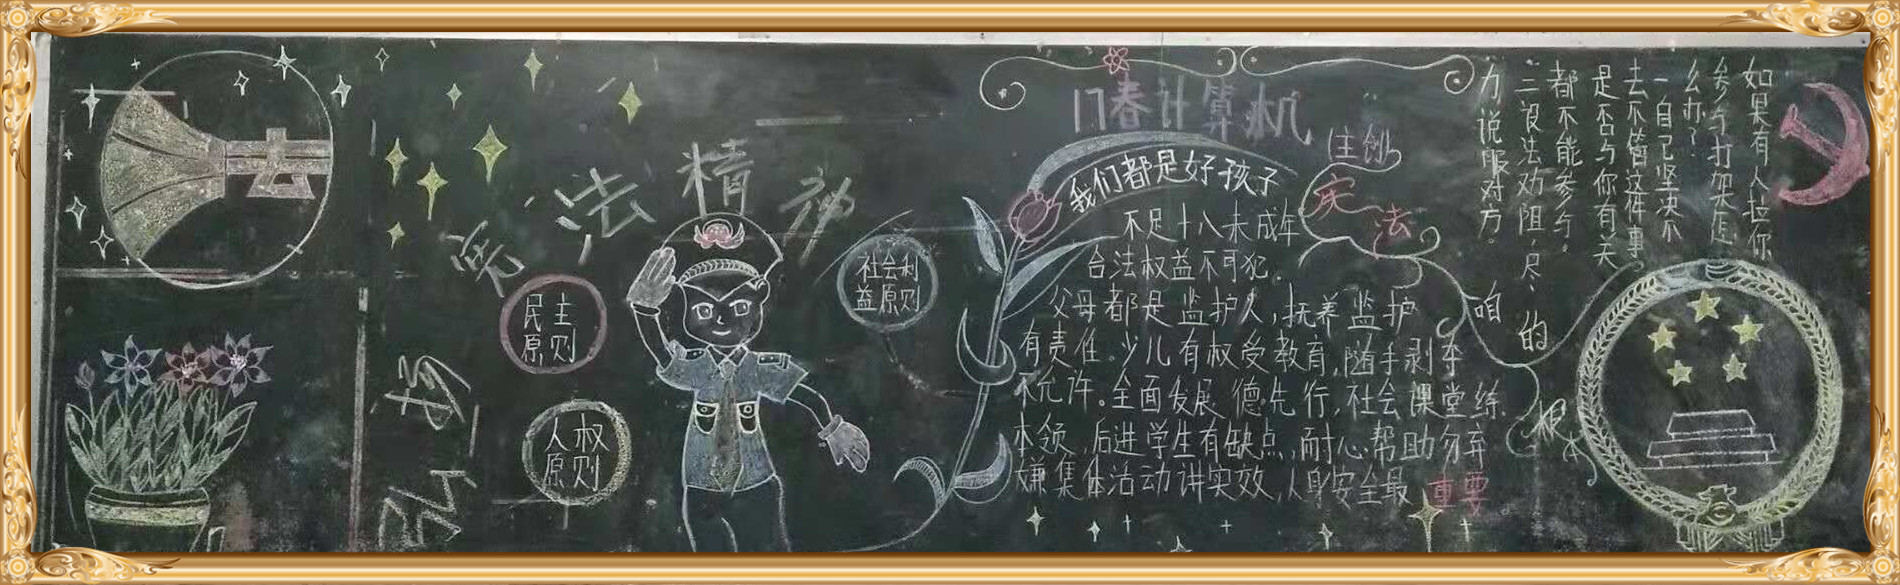 法
弘扬
宪法精神
民主
原则
人权
原则
社会利
益原则
17春计算机
我们都是好孩子
不足十八未成年
合法权益不可犯。
父母都是监护人,抚养监护
有责任。少儿有权受教育,随手剥夺
不允许。全面发展德先行,社会课堂练
本领,后进学生有缺点,耐心帮助勿弃
嫌集体活动讲实效,人身安全最重要
法
咱
的
根本
如果有人拉你
参与打架怎
么办?
一自己坚决不
去不管这件事
是否与你有关
都不能参与。
二设法劝阻,尽
力说服对方。